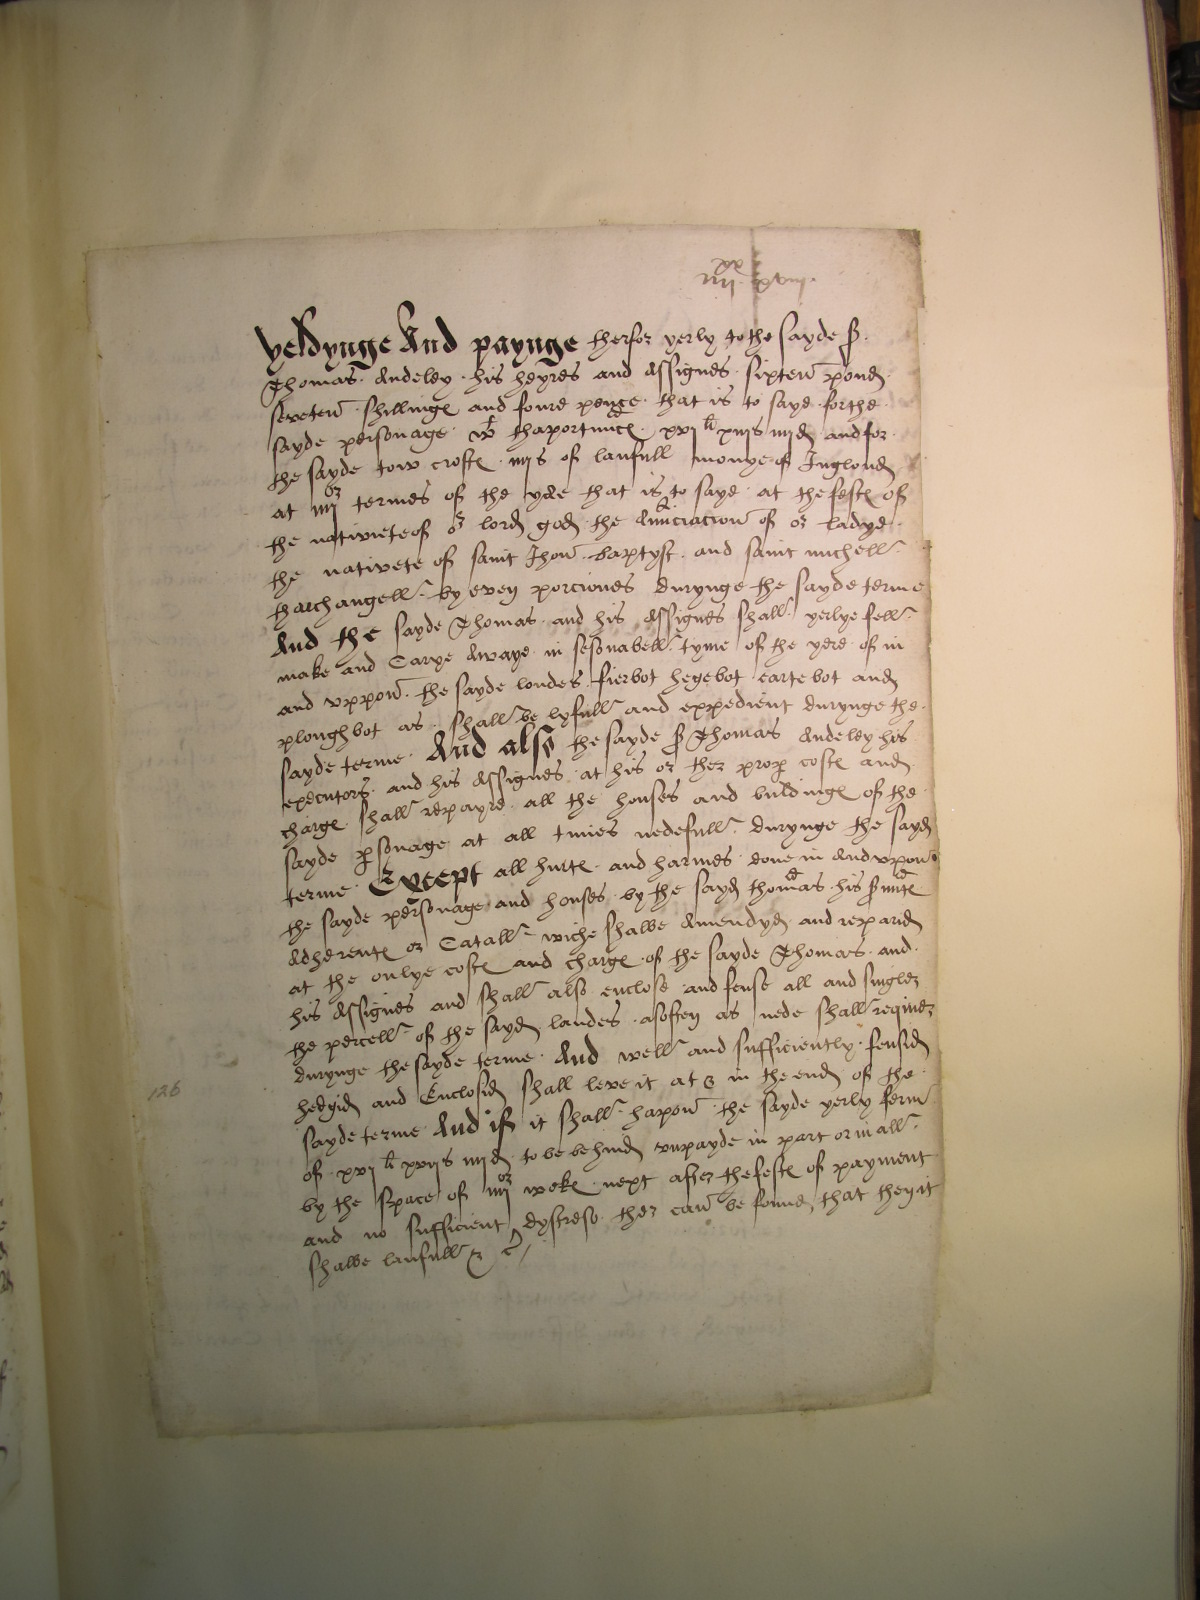 xx
iiii xviij
Yeldynge And paynge therfor yerly to the sayde Sr
Thomas Audeley his heyres and Assignes sixten pond
seveten shillinge and foure pence that is to saye for the
sayde personage wt thaportunce xvj li xiijs iiijd and for
the sayde tow croftℯ iiijs of laufull monye of Inglond
at iiij or termes of the yere that is to saye at the festℯ of
the nativiete of or lord god the Anuciacion of or ladye
the nativete of saint Jhon baptyst and saint michell
tharchangell by even porciones durynge the sayde terme
And the sayde Thomas and his Assignes shall yerlye fell
make and Carye Awaye in sesonabell tyme of the yere of in
and uppon the sayde londes fierbot hegebot cartebot and
ploughbot as shall be lyfull and expedient durynge the
sayde terme And also the sayde Sr Thomas Audeley his
executors and his Assignes at his or ther prop costℯ and
charge shall repayre all the houses and buldingℯ of the
sayde psonage at all times nedefull durynge the sayd
terme Except all hurtℯ and harmes done in And vpon
the sayde personage and houses by the sayd thomas his suntℯ
Adherentℯ or Catall wiche shalbe Amendyd and reparid
at the onlye costℯ and chargℯ of the sayde Thomas and
his Assignes and shall also enclose and fense all and singler
the percell of the sayd landes asoften as nede shall requier
durynge the sayde terme And well and sufficiently fensid
hedgid and Enclosid shall leve it at in the end of the
sayde terme And if it shall hapon the sayde yerly ferm
of xvj li xvijs iiijd to be behind vnpayde in part or in all
by the space of iiij or wekℯ next after the festℯ of payment
and no sufficient dystrese ther can be founde that then it
shalbe laufull & c
126